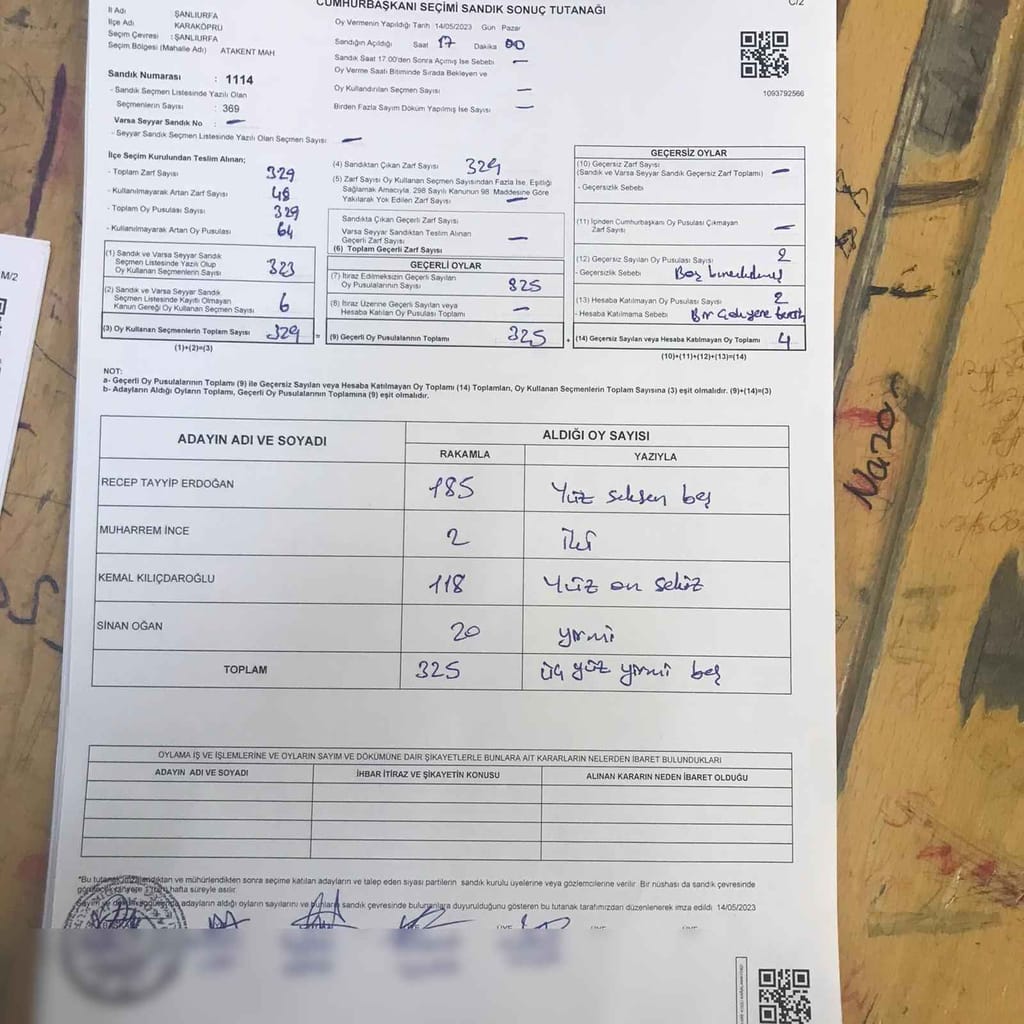 CUMHURBAŞKANI SEÇİMİ SANDIK SONUÇ TUTANAĞI
C/2
İl Adı ŞANLIURFA
İlçe Adı KARAKÖPRÜ
Seçim Çevresi : ŞANLIURFA
Seçim Bölgesi (Mahalle Adı) ATAKENT MAH
Sandık Numarası : 1114
- Sandık Seçmen Listesinde Yazılı Olan
Seçmenlerin Sayısı : 369
Varsa Seyyar Sandık No : —
- Seyyar Sandık Seçmen Listesinde Yazılı Olan Seçmen Sayısı : —
Oy Vermenin Yapıldığı Tarih 14/05/2023 Gün Pazar
Sandığın Açıldığı Saat 17 Dakika 00
Sandık Saat 17.00'den Sonra Açımış İse Sebebi —
Oy Verme Saati Bitiminde Sırada Bekleyen ve
Oy Kullandırılan Seçmen Sayısı —
Birden Fazla Sayım Döküm Yapılmış İse Sayısı —
1093792566
İlçe Seçim Kurulundan Teslim Alınan;
- Toplam Zarf Sayısı 329
- Kullanılmayarak Artan Zarf Sayısı 48
- Toplam Oy Pusulası Sayısı 329
- Kullanılmayarak Artan Oy Pusulası 64
(1) Sandık ve Varsa Seyyar Sandık
Seçmen Listesinde Yazılı Olup
Oy Kullanan Seçmenlerin Sayısı 323
(2) Sandık ve Varsa Seyyar Sandık
Seçmen Listesinde Kayıtlı Olmayan
Kanun Gereği Oy Kullanan Seçmen Sayısı 6
(3) Oy Kullanan Seçmenlerin Toplam Sayısı 329 =
(1)+(2)=(3)
(4) Sandıktan Çıkan Zarf Sayısı 329
(5) Zarf Sayısı Oy Kullanan Seçmen Sayısından Fazla İse, Eşitliği
Sağlamak Amacıyla, 298 Sayılı Kanunun 98. Maddesine Göre
Yakılarak Yok Edilen Zarf Sayısı —
Sandıkta Çıkan Geçerli Zarf Sayısı
Varsa Seyyar Sandıktan Teslim Alınan
Geçerli Zarf Sayısı —
(6) Toplam Geçerli Zarf Sayısı
GEÇERLİ OYLAR
(7) İtiraz Edilmeksizin Geçerli Sayılan
Oy Pusulalarının Sayısı 325
(8) İtiraz Üzerine Geçerli Sayılan veya
Hesaba Katılan Oy Pusulası Toplamı —
(9) Geçerli Oy Pusulalarının Toplamı 325 +
GEÇERSİZ OYLAR
(10) Geçersiz Zarf Sayısı
(Sandık ve Varsa Seyyar Sandık Geçersiz Zarf Toplamı) —
- Geçersizlik Sebebi
(11) İçinden Cumhurbaşkanı Oy Pusulası Çıkmayan
Zarf Sayısı —
(12) Geçersiz Sayılan Oy Pusulası Sayısı 2
- Geçersizlik Sebebi Boş
(13) Hesaba Katılmayan Oy Pusulası Sayısı 2
- Hesaba Katılmama Sebebi
(14) Geçersiz Sayılan veya Hesaba Katılmayan Oy Toplamı 4
(10)+(11)+(12)+(13)=(14)
NOT:
a- Geçerli Oy Pusulalarının Toplamı (9) ile Geçersiz Sayılan veya Hesaba Katılmayan Oy Toplamı (14) Toplamları, Oy Kullanan Seçmenlerin Toplam Sayısına (3) eşit olmalıdır. (9)+(14)=(3)
b- Adayların Aldığı Oyların Toplamı, Geçerli Oy Pusulalarının Toplamına (9) eşit olmalıdır.
ADAYIN ADI VE SOYADI ALDIĞI OY SAYISI
RAKAMLA YAZIYLA
RECEP TAYYİP ERDOĞAN 185 Yüz seksen beş
MUHARREM İNCE 2 iki
KEMAL KILIÇDAROĞLU 118 Yüz on sekiz
SİNAN OĞAN 20 yirmi
TOPLAM 325 üç yüz yirmi beş
OYLAMA İŞ VE İŞLEMLERİNE VE OYLARIN SAYIM VE DÖKÜMÜNE DAİR ŞİKAYETLERLE BUNLARA AİT KARARLARIN NELERDEN İBARET BULUNDUKLARI
ADAYIN ADI VE SOYADI İHBAR İTİRAZ VE ŞİKAYETİN KONUSU ALINAN KARARIN NEDEN İBARET OLDUĞU
sonra seçime katılan adayların ve talep eden siyasi partilerin sandık kurulu üyelerine veya gözlemcilerine verilir. Bir nüshası da sandık çevresinde
hafta süreyle asılır.
adayların aldığı oyların sayılarını ve bunların sandık çevresinde bulunanlara duyurulduğunu gösteren bu tutanak tarafımızdan düzenlenerek imza edildi. 14/05/2023
M/2
Nazar